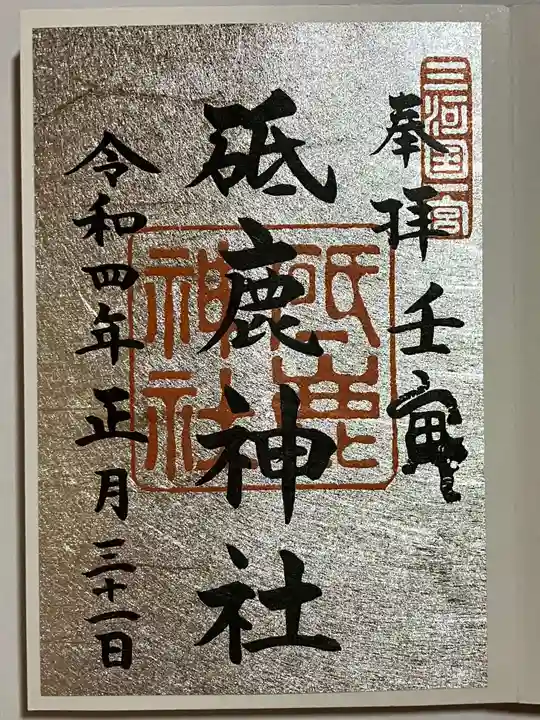 三河国一宮
奉拝 壬寅
砥鹿神社
砥鹿神社
令和四年正月三十一日